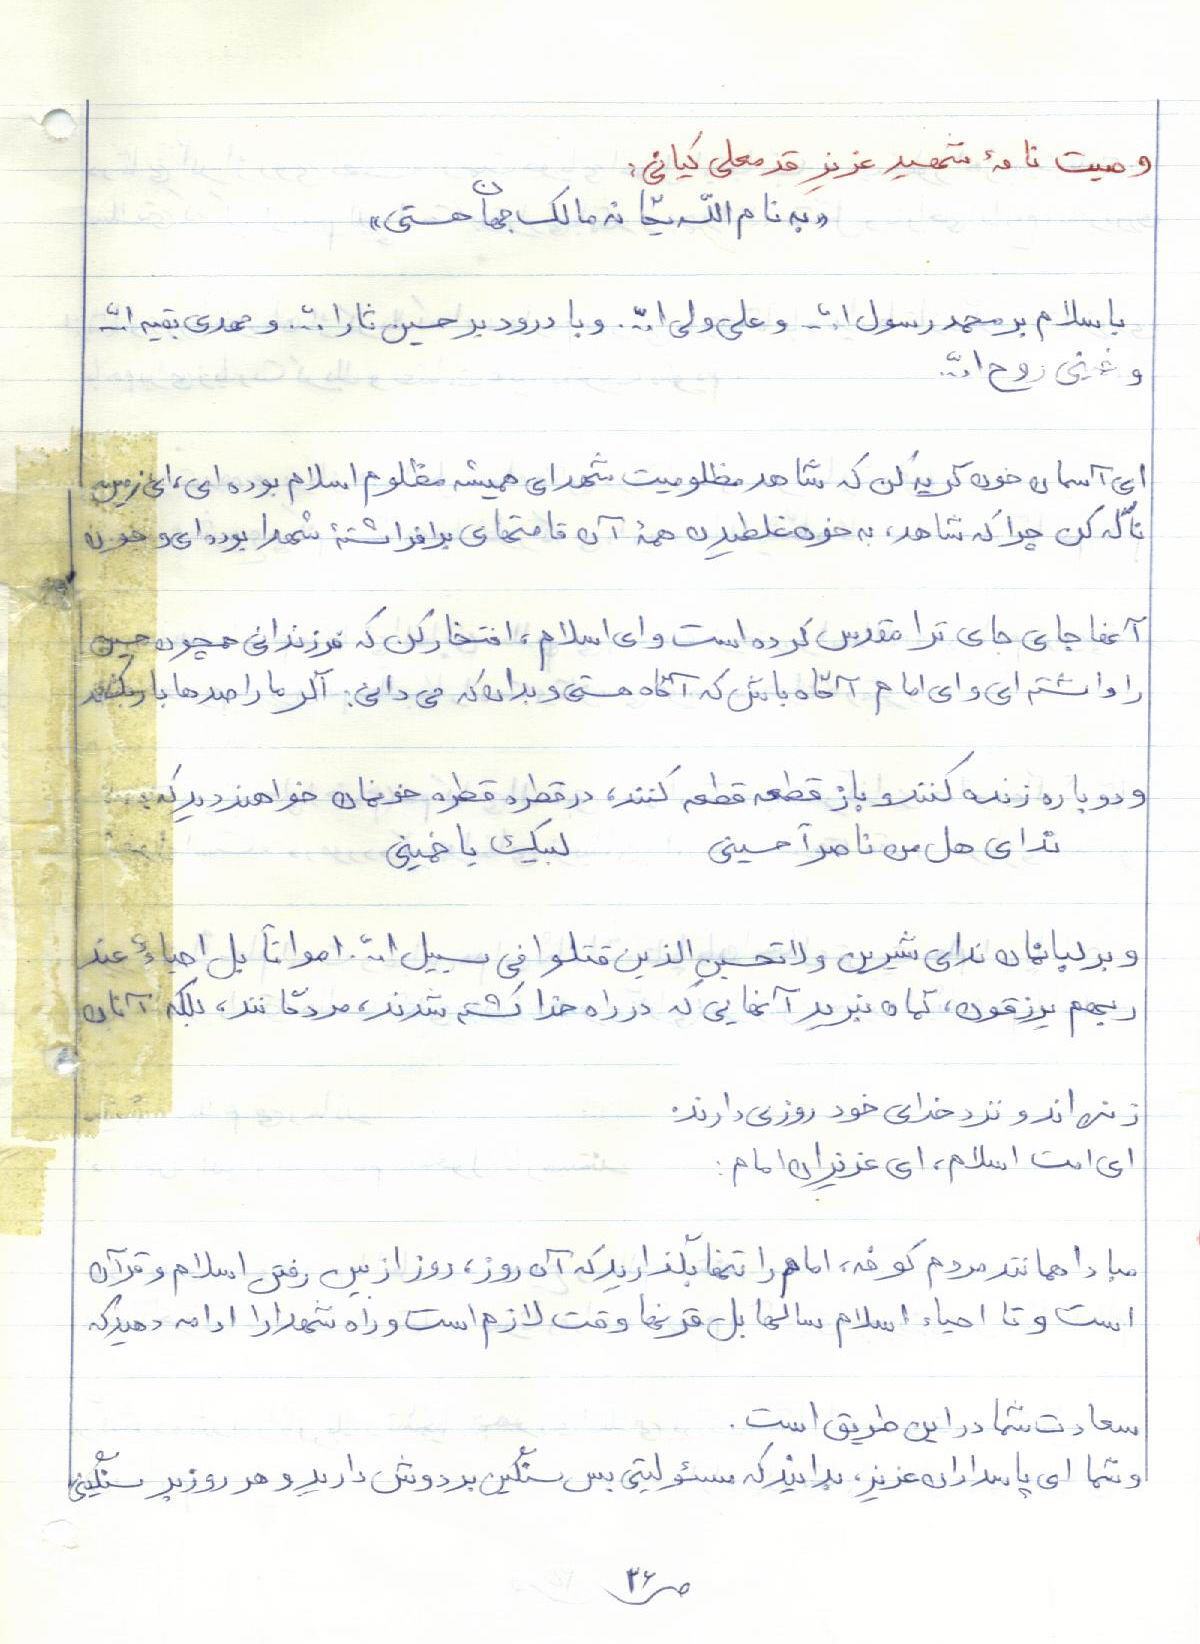 وصیت نامهٔ شهید عزیز قدمعلی کیانی:
«به نام اللّه یگانه مالک جهان هستی»
با سلام بر محمد رسول ا... و علی ولی ا... و با درود بر حسین ثارا... و مهدی بقیه ا...
و خمینی روح ا...
ای آسمان خون گریه کن که شاهد مظلومیت شهدای همیشه مظلوم اسلام بوده ای، ای زمین
ناله کن چرا که شاهد، به خون غلطیدن همهٔ آن قامتهای برافراشتهٔ شهدا بوده ای و خون
آنها جای جای ترا مقدس کرده است و ای اسلام، افتخار کن که فرزندانی همچون حسین
را داشته ای و ای امام آگاه باش که آگاه هستی و بدان که می دانی: اگر ما را صدها بار بکشند
و دوباره زنده کنند و باز قطعه قطعه کنند، در قطره قطره خونمان خواهند دید که
ندای هل من ناصراً حسینی لبیک یا خمینی
و بر لبانمان ندای شیرین ولاتحسبن الذین قتلوا فی سبیل ا... امواتاً بل احیاءٌ عند
ربهم یرزقون، گمان نبرید آنهایی که در راه خدا کشته شدند، مردگانند، بلکه آنان
زنده اند و نزد خدای خود روزی دارند.
ای امت اسلام، ای عزیزان امام:
مبادا همانند مردم کوفه، امام را تنها بگذارید که آن روز، روز از بین رفتن اسلام و قرآن
است و تا احیاء اسلام سالها بل قرنها وقت لازم است و راه شهدا را ادامه دهید که
سعادت شما در این طریق است.
و شما ای پاسداران عزیز، بدانید که مسئولیتی بس سنگین بر دوش دارید و هر روز بر سنگینی
ص ۳۶